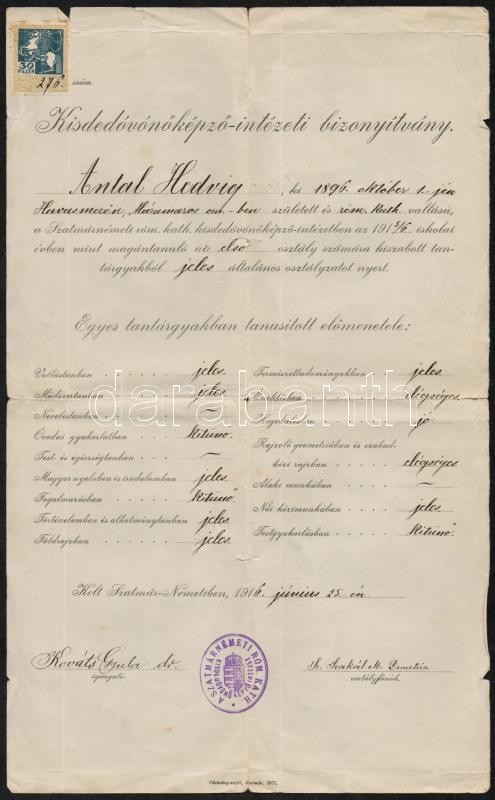 30
FILLÉR
276. szám.
Kisdedóvónőképző-intézeti bizonyítvány.
Antal Hedvig, ki 1896. október 1.-jén
Havasmezőn, Máramaros vm.-ben született és róm. kath. vallású,
a Szatmárnémeti róm. kath. kisdedóvónőképző-intézetben az 1915/6 iskolai
évben mint magántanuló az első osztály számára kiszabott tan-
tárgyakból jeles általános osztályzatot nyert.
Egyes tantárgyakban tanusított előmenetele:
Vallástanban jeles.
Módszertanban jeles.
Neveléstanban —
Óvodai gyakorlatban kitünő.
Test- és egészségtanban —
Magyar nyelvben és irodalomban jeles.
Fogalmazásban kitünő
Történelemben és alkotmánytanban jeles.
Földrajzban jeles.
Természettudományokban jeles.
Éneklésben elégséges.
Hegedülésben jó
Rajzoló geometriában és szabad-
kézi rajzban elégséges.
Alaki munkában —
Női kézimunkában jeles.
Testgyakorlásban kitünő
Kelt Szatmár-Németiben, 1916. június 25.-én
Kováts Gyula dr.
igazgató.
A SZATMÁRNÉMETI RÓM. KATH.
Szakál M. Demetria
osztályfőnök.
darabanth